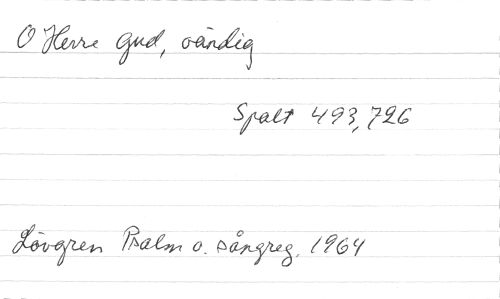 O Herre Gud, oändig
Spalt 493,726
Lövgren Psalm o. sångreg. 1964